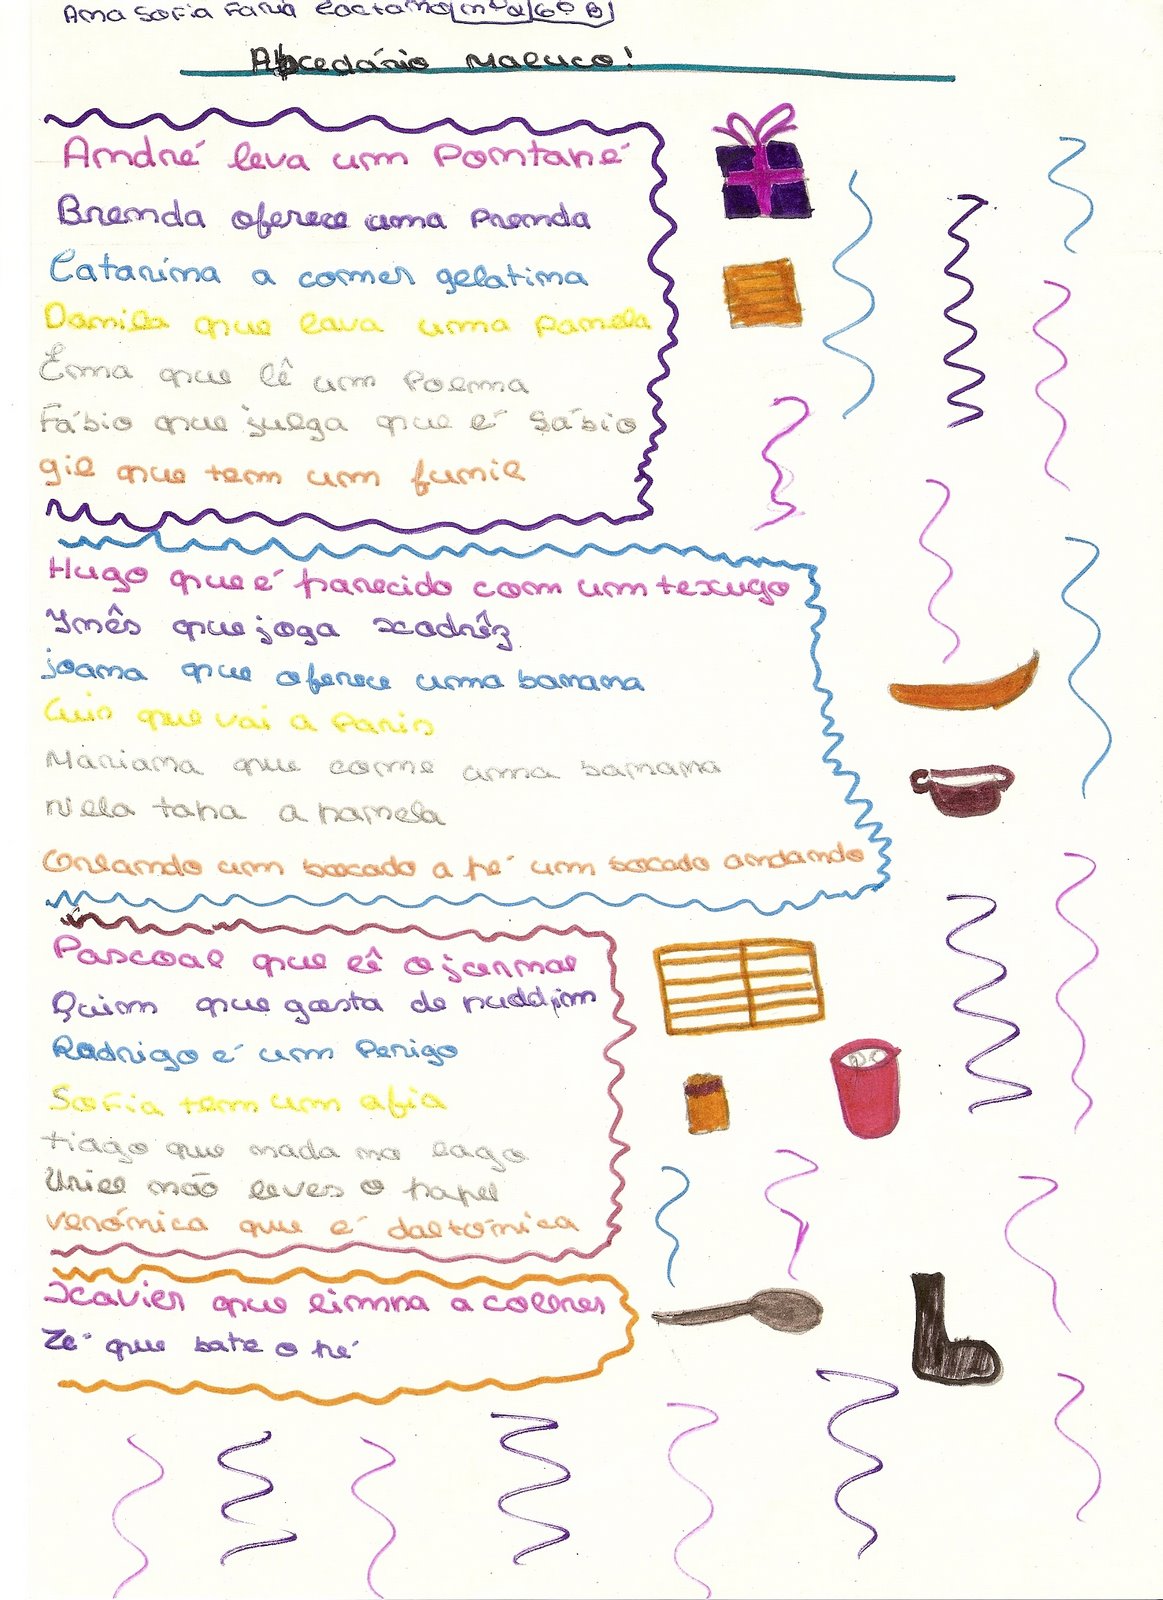 Ana Sofia Faria Caetano nº2 6º B
Abcedário Maluco!
André leva um Pontapé
Brenda oferece uma Prenda
Catarina a comer gelatina
Damila que lava uma Panela
Ema que lê um Poema
Fábio que julga que é Sábio
gil que tem um funil
Hugo que é parecido com um texugo
Ynês que joga xadrêz
joana que oferece uma banana
Luis que vai a Paris
Mariana que come uma banana
Nela tapa a panela
Orlando um bocado a pé um bocado andando
Pascoal que lê o jornal
Quim que gosta de puddim
Rodrigo é um Perigo
Sofia tem um afia
tiago que nada no lago
Uriel não leves o papel
verónica que é daltónica
Xavier que limpa a colher
Zé que bate o pé